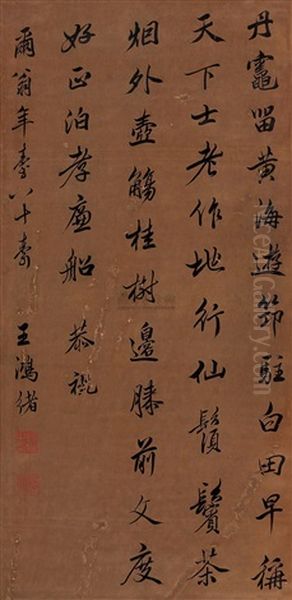 丹竈留黃海遊筇駐白田早稱
天下士老作地行仙鬚鬢茶
烟外壺觴桂樹邊膝前文度
好正泊孝廉船 恭祝
爾翁年臺八十壽 王鴻緒